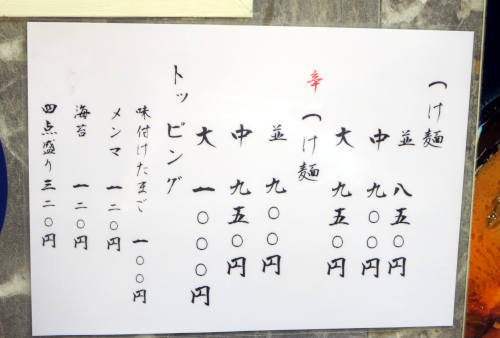 つけ麺
並 八五〇円
中 九〇〇円
大 九五〇円
辛 つけ麺
並 九〇〇円
中 九五〇円
大 一〇〇〇円
トッピング
味付けたまご 一〇〇円
メンマ 一二〇円
海苔 一二〇円
四点盛り 三二〇円